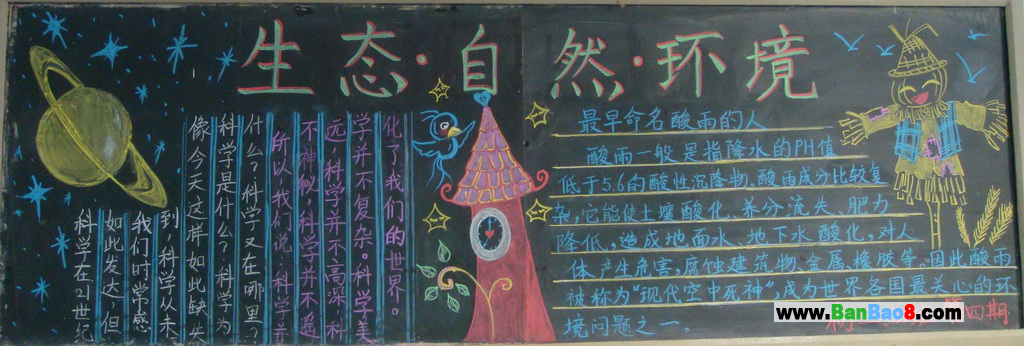 生态·自然·环境
科学在21世纪
如此发达,但
我们时常感
到,科学从未
像今天这样如此缺失
科学是什么?科学为
什么?科学又在哪里?
所以我们说:科学并
不神秘,科学并不遥
远,科学并不高深,科
学并不复杂。科学美
化了我们的世界。
最早命名酸雨的人
酸雨一般是指降水的PH值
低于5.6的酸性沉降物、酸雨成分比较复
杂,它能使土壤酸化、养分流失、肥力
降低,造成地面水、地下水酸化,对人
体产生危害,腐蚀建筑物、金属、橡胶等。因此酸雨
被称为“现代空中死神”,成为世界各国最关心的环
境问题之一。
四期
www.BanBao8.com